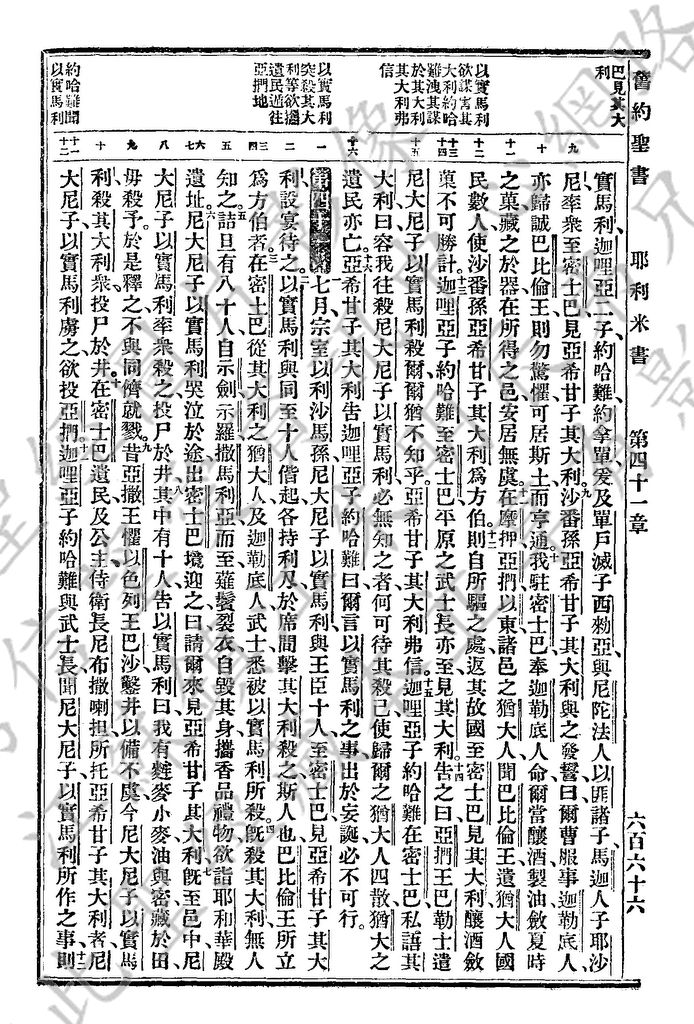 舊約聖書 耶利米書 第四十一章 六百六十六
巴見其大利
以實馬利欲謀害其大利約哈難洩其謀於其大利弗其大利弗信
以實馬利突殺其大利等欲擄遺民遁往亞捫地
約哈難聞以實馬利
九 十 十一 十二 十三 十四 十五 十六 一 二 三 四 五 六 七 八 九 十 十一 十二
實馬利迦哩亞二子約哈難約拿單爰及單戶滅子西勑亞與尼陀法人以匪諸子馬迦人子耶沙
尼率衆至密士巴見亞希甘子其大利沙番孫亞希甘子其大利與之發誓曰爾曹服事迦勒底人
亦歸誠巴比倫王則勿驚懼可居斯土而亨通我駐密士巴奉迦勒底人命爾當釀酒製油斂夏時
之菓藏之於器在所得之邑安居無虞在摩押亞捫以東諸邑之猶大人聞巴比倫王遺猶大人國
民數人使沙番孫亞希甘子其大利爲方伯則自所驅之處返其故國至密士巴見其大利釀酒斂
菓不可勝計迦哩亞子約哈難至密士巴平原之武士長亦至見其大利告之曰亞捫王巴勒士遣
尼大尼子以實馬利殺爾爾猶不知乎亞希甘子其大利弗信迦哩亞子約哈難在密士巴私語其
大利曰容我往殺尼大尼子以實馬利必無知之者何可待其殺已使歸爾之猶大人四散猶大之
遺民亦亡亞希甘子其大利告迦哩亞子約哈難曰爾言以實馬利之事出於妄誕必不可行
第四十一章 七月宗室以利沙馬孫尼大尼子以實馬利與王臣十人至密士巴見亞希甘子其大
利設宴待之以實馬利與同至十人偕起各持利刃於席間擊其大利殺之斯人也巴比倫王所立
爲方伯者在密士巴從其大利之猶大人及迦勒底人武士悉被以實馬利所殺旣殺其大利無人
知之詰旦有八十人自示劍示羅撒馬利亞而至薙鬚裂衣自毀其身攜香品禮物欲詣耶和華殿
遺址尼大尼子以實馬利哭泣於途出密士巴境迎之曰請爾來見亞希甘子其大利旣至邑中尼
大尼子以實馬利率衆殺之投尸於井其中有十人告以實馬利曰我有麰麥小麥油與密藏於田
毋殺予於是釋之不與同儕就戮昔亞撒王懼以色列王巴沙鑿井以備不虞今尼大尼子以實馬
利殺其大利衆投尸於井在密士巴遺民及公主侍衛長尼布撒喇担所托亞希甘子其大利者尼
大尼子以實馬利虜之欲投亞捫迦哩亞子約哈難與武士長聞尼大尼子以實馬利所作之事則